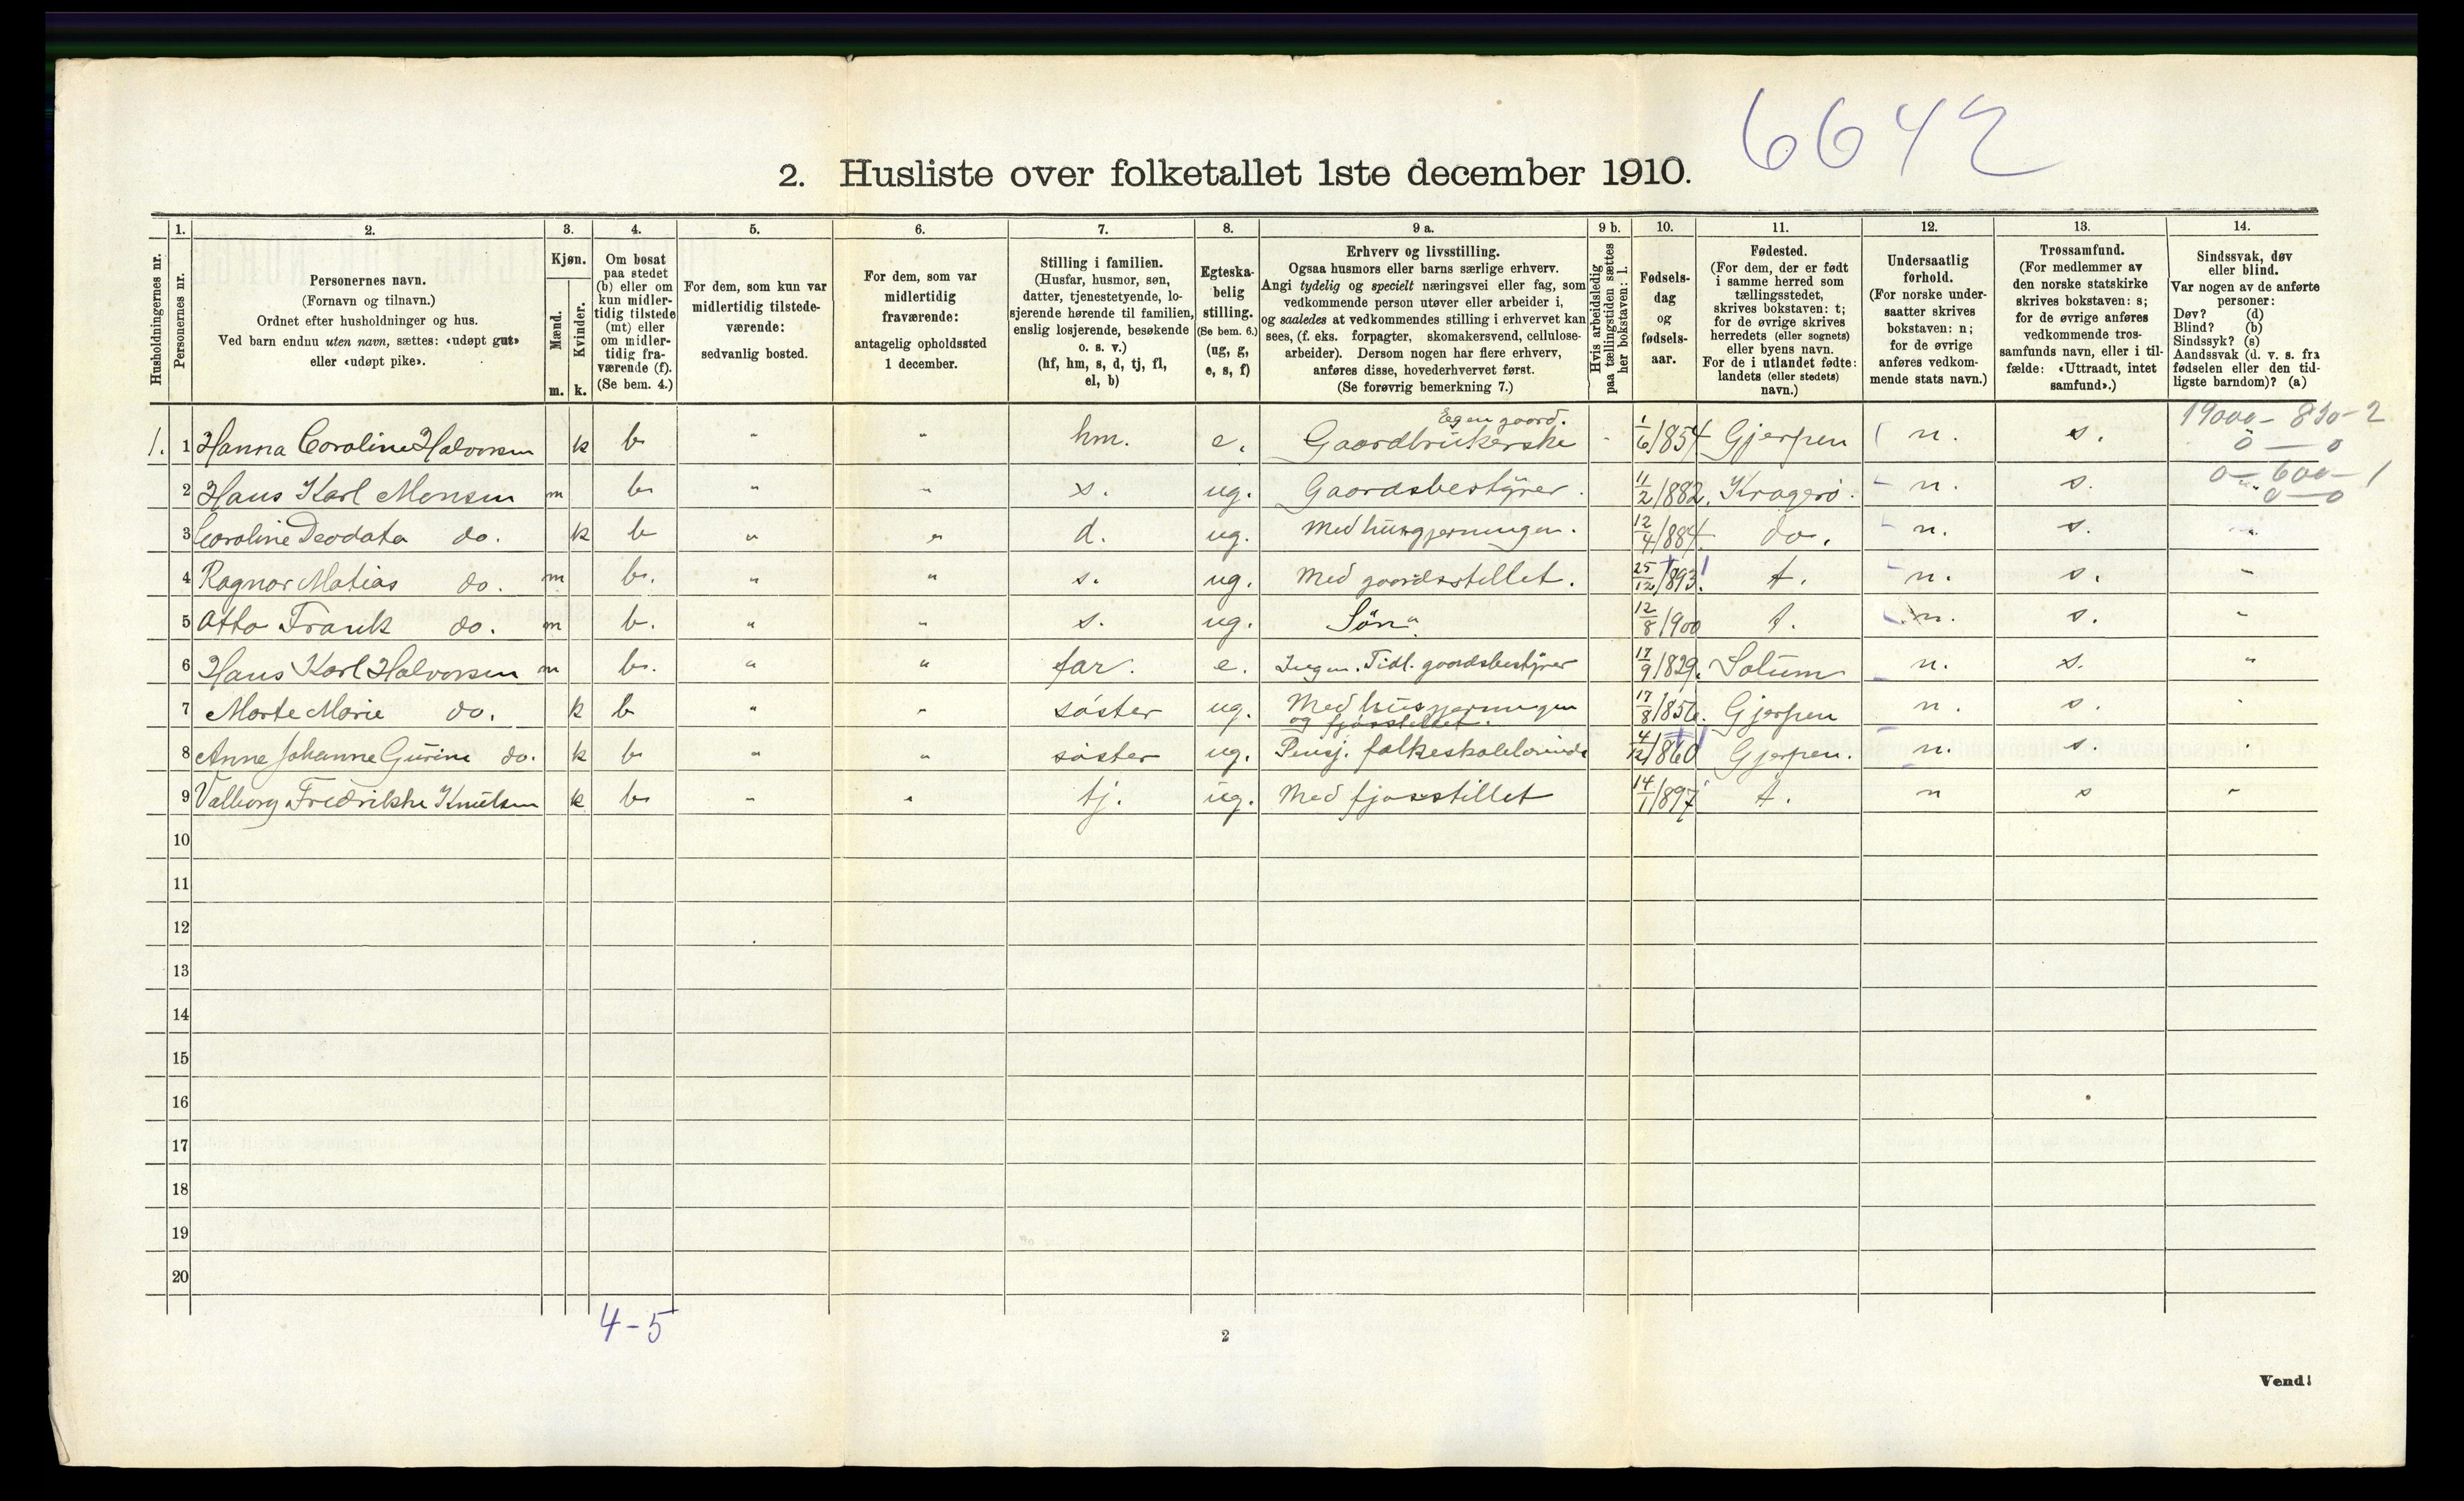 6642
2. Husliste over folketallet 1ste december 1910.
Husholdningernes nr.
1.
Personernes nr.
2.
Personernes navn.
(Fornavn og tilnavn.)
Ordnet efter husholdninger og hus.
Ved barn endnu uten navn, sættes: «udøpt gut»
eller «udøpt pike».
3.
Kjøn.
Mænd.
Kvinder.
m. k.
4.
Om bosat
paa stedet
(b) eller om
kun midler-
tidig tilstede
(mt) eller
om midler-
tidig fra-
værende (f).
(Se bem. 4.)
5.
For dem, som kun var
midlertidig tilstede-
værende:
sedvanlig bosted.
6.
For dem, som var
midlertidig
fraværende:
antagelig opholdssted
1 december.
7.
Stilling i familien.
(Husfar, husmor, søn,
datter, tjenestetyende, lo-
sjerende hørende til familien,
enslig losjerende, besøkende
o. s. v.)
(hf, hm, s, d, tj, fl,
el, b)
8.
Egteska-
belig
stilling.
(Se bem. 6.)
(ug, g,
e, s, f)
9 a.
Erhverv og livsstilling.
Ogsaa husmors eller barns særlige erhverv.
Angi tydelig og specielt næringsvei eller fag, som
vedkommende person utøver eller arbeider i,
og saaledes at vedkommendes stilling i erhvervet kan
sees, (f. eks. forpagter, skomakersvend, cellulose-
arbeider). Dersom nogen har flere erhverv,
anføres disse, hovederhvervet først.
(Se forøvrig bemerkning 7.)
9 b.
Hvis arbeidsledig
paa tællingstiden sættes
her bokstaven: l.
10.
Fødsels-
dag
og
fødsels-
aar.
11.
Fødested.
(For dem, der er født
i samme herred som
tællingsstedet,
skrives bokstaven: t;
for de øvrige skrives
herredets (eller sognets)
eller byens navn.
For de i utlandet fødte:
landets (eller stedets)
navn.)
12.
Undersaatlig
forhold.
(For norske under-
saatter skrives
bokstaven: n;
for de øvrige
anføres vedkom-
mende stats navn.)
13.
Trossamfund.
(For medlemmer av
den norske statskirke
skrives bokstaven: s;
for de øvrige anføres
vedkommende tros-
samfunds navn, eller i til-
fælde: «Uttraadt, intet
samfund».)
14.
Sindssvak, døv
eller blind.
Var nogen av de anførte
personer:
Døv? (d)
Blind? (b)
Sindssyk? (s)
Aandssvak (d. v. s. fra
fødselen eller den tid-
ligste barndom)? (a)
1. 1 Hanna Caroline Halvorsen k b " " hm. e. Egen gaard. Gaardbrukerske - 1/6 1854 Gjerpen n. s. 19000-830-2 0-0
2 Hans Karl Monsen m b " " s. ug. Gaardsbestyrer. 11/2 1882. Kragerø. n. s. 0-600-1 0-0
3 Caroline Deodata do. k b " " d. ug. Med husgjerningen. 12/4 1884 do. n. s. "
4 Ragnar Matias do. m b. " " s. ug. Med gaardsstellet. 25/12 1893. t. n. s. "
5 Otto Frank do. m b. " " s. ug. Søn " 12/8 1900 t. n. s. "
6 Hans Karl Halvorsen m b. " " far. e. Ingen. Tidl. gaardsbestyrer 17/9 1829. Solum n. s. "
7 Marte Marie do. k b " " søster ug. Med husgjerningen og fjøsstellet. 17/8 1856. Gjerpen n. s. "
8 Anne Johanne Gurine do. k b " " søster ug. Pensj. folkeskolelærerinde 4/12 1860 Gjerpen. n. s. "
9 Valborg Fredrikke Knutsen k b " " tj. ug. Med fjøsstillet 14/1 1897 t. n s "
10
11
12
13
14
15
16
17
18
19
20
4-5
2
Vend!